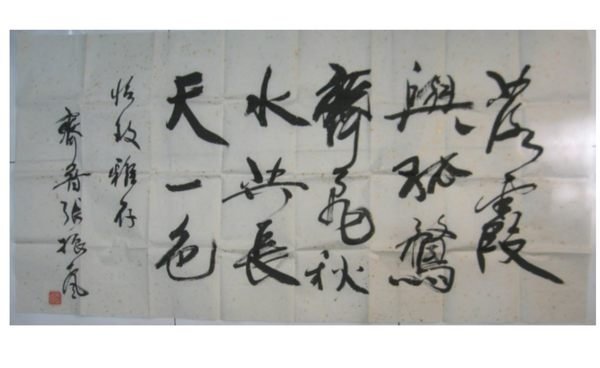 落霞
與孤鶩
齊飛秋
水共長
天一色
怡玫雅存
齊魯张振